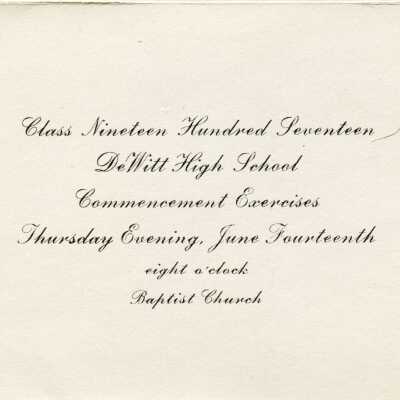 Class Nineteen Hundred Seventeen
DeWitt High School
Commencement Exercises
Thursday Evening, June Fourteenth
eight o'clock
Baptist Church